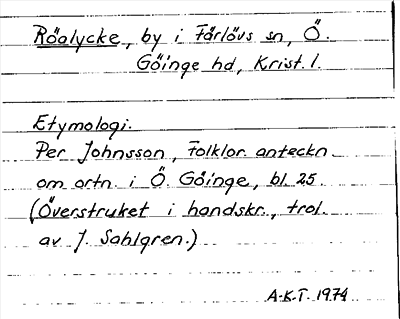 Röalycke, by i Färlövs sn, Ö.
Göinge hd, Krist. l.
Etymologi.
Per Johnsson, Folklor. anteckn.
om ortn. i Ö. Göinge, bl. 25
(Överstruket i handskr., trol.
av J. Sahlgren.)
A-K.T. 1974